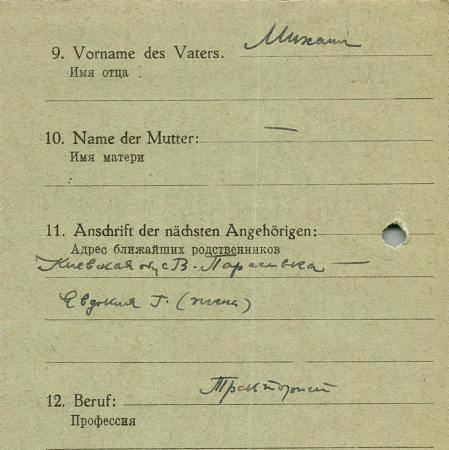 9. Vorname des Vaters. Михаил
Имя отца
10. Name der Mutter: —
Имя матери
11. Anschrift der nächsten Angehörigen:
Адрес ближайших родственников
Киевская В. Тарасивка —
Евдокия Г. (жена)
12. Beruf: Тракторист
Профессия